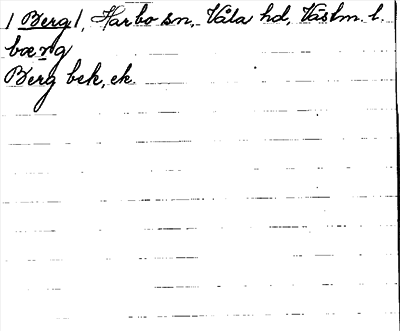 /Berg/, Harbo sn, Våla hd, Västm. l.
bærg
Berg bek, ek